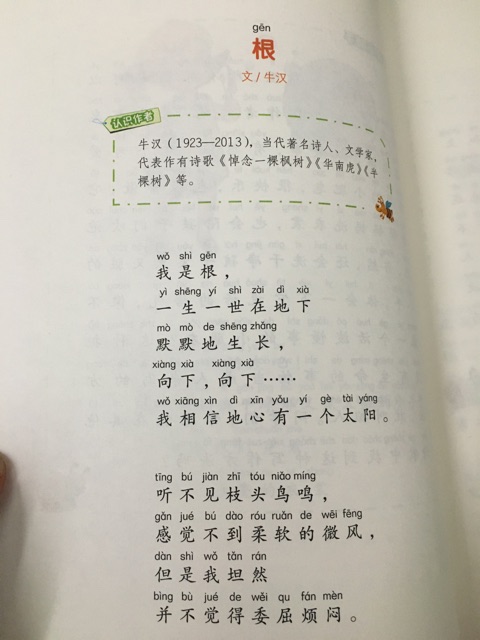 gēn
根
文/牛汉
认识作者
牛汉(1923—2013)，当代著名诗人、文学家，
代表作有诗歌《悼念一棵枫树》《华南虎》《半
棵树》等。
wǒ shì gēn
我是根，
yì shēng yí shì zài dì xià
一生一世在地下
mò mò de shēng zhǎng
默默地生长，
xiàng xià xiàng xià
向下，向下……
wǒ xiāng xìn dì xīn yǒu yí gè tài yáng
我相信地心有一个太阳。
tīng bú jiàn zhī tóu niǎo míng
听不见枝头鸟鸣，
gǎn jué bú dào róu ruǎn de wēi fēng
感觉不到柔软的微风，
dàn shì wǒ tǎn rán
但是我坦然
bìng bù jué de wěi qu fán mèn
并不觉得委屈烦闷。